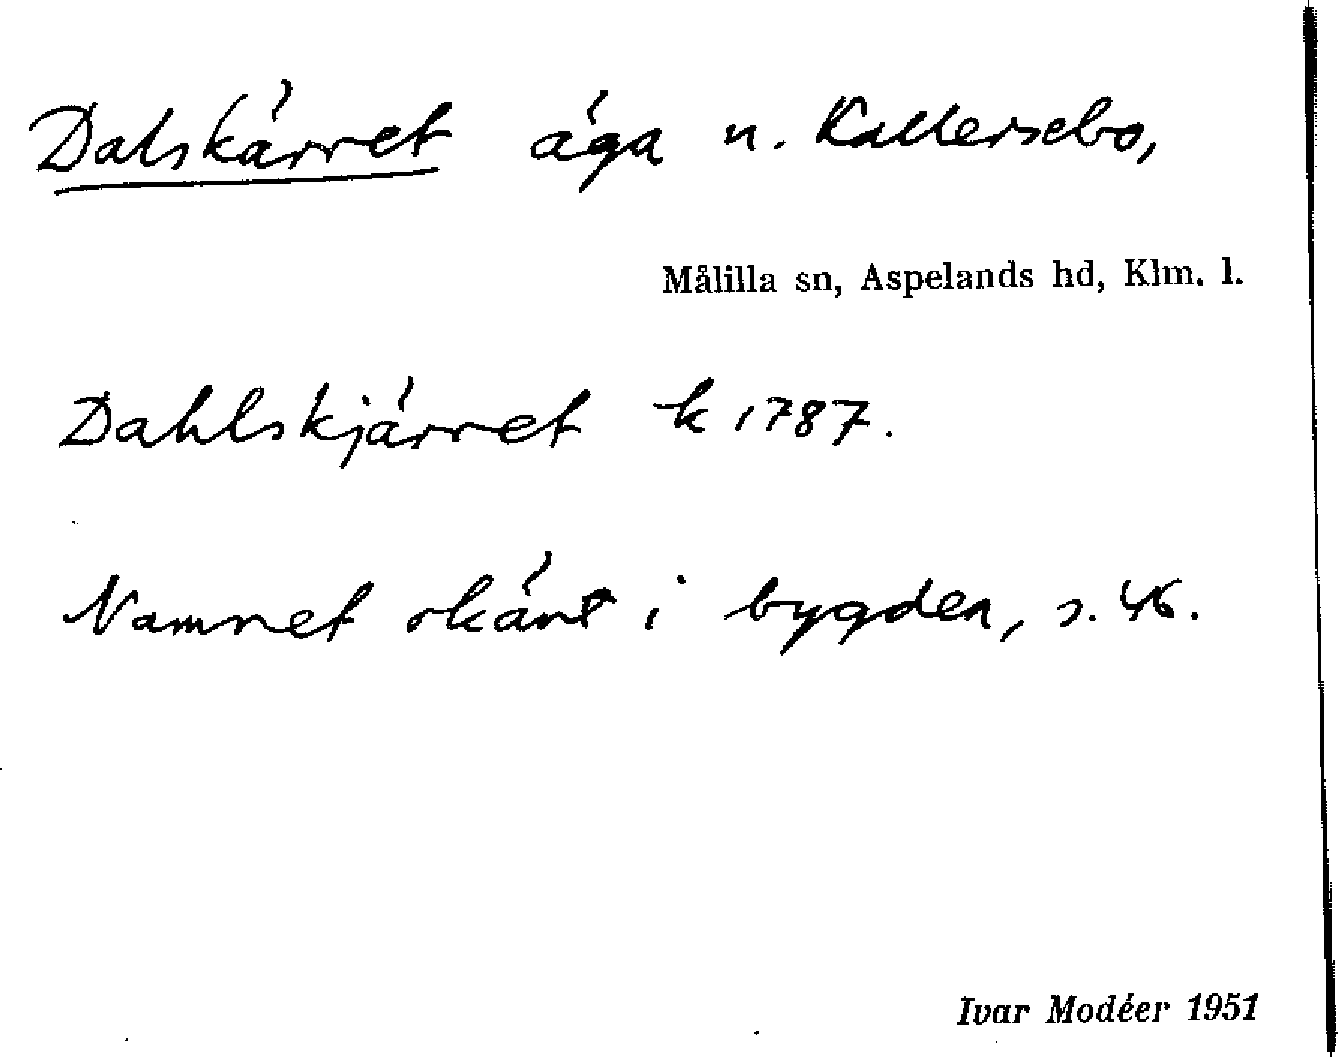 Dalskärret äga u. Kallersebo,
Målilla sn, Aspelands hd, Klm. l.
Dahlskjärret k 1787.
Namnet okänt i bygden, s. 46.
Ivar Modéer 1951